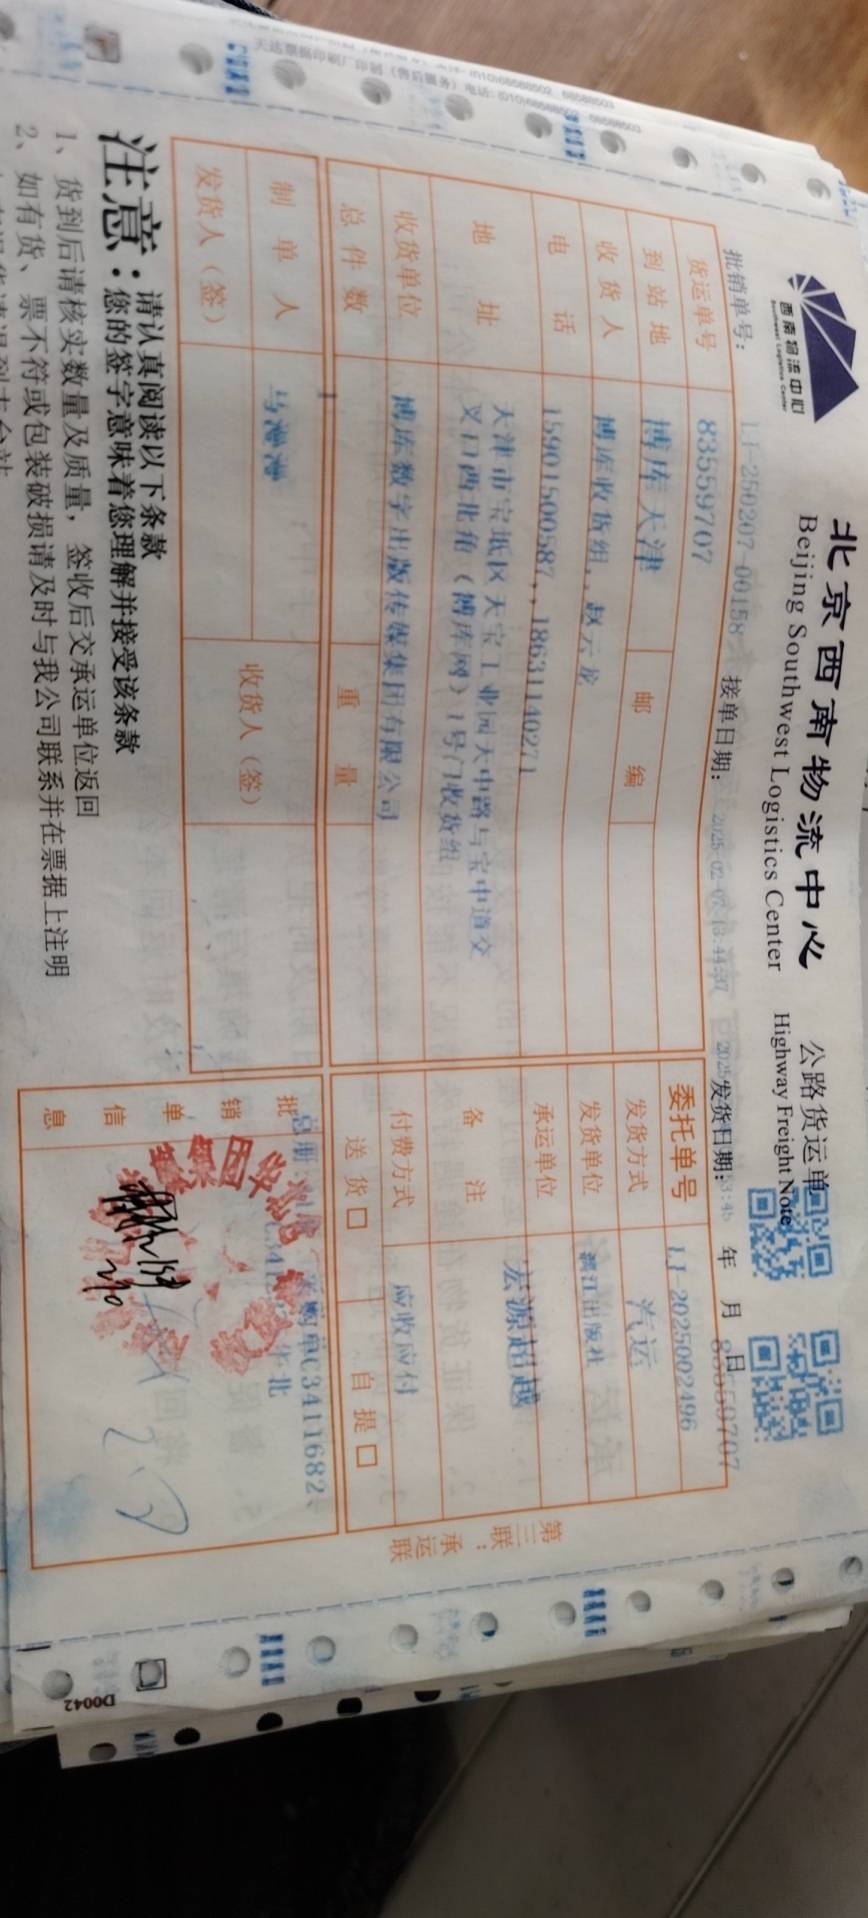 天达票据印刷厂印制（售后服务）电话：(010)68588502 68588503
西南物流中心
Southwest Logistics Center
北京西南物流中心 公路货运单
Beijing Southwest Logistics Center Highway Freight Note
批销单号： LJ-250207-00158 接单日期： 2025-02-07 13:44:37 发货日期： 年 月 日
83559707
货运单号 83559707 委托单号 LJ-2025002496
到站地 博库天津 邮编 发货方式 汽运
收货人 博库收货组，赵云龙 发货单位 漓江出版社
电话 15901500587，，18631140271 承运单位 宏源超越
地址 天津市宝坻区天宝工业园天中路与宝中道交
叉口西北角（博库网）1号门收货组 备注
收货单位 博库数字出版传媒集团有限公司 付费方式 应收应付
总件数 1 重量 送货 自提
制单人 马漫漫 收货人（签） 批销单信息 采购单C3411682、
华北
发货人（签）
第三联：承运联
注意：
请认真阅读以下条款
您的签字意味着您理解并接受该条款
1、货到后请核实数量及质量，签收后交承运单位返回
2、如有货、票不符或包装破损请及时与我公司联系并在票据上注明
D0042